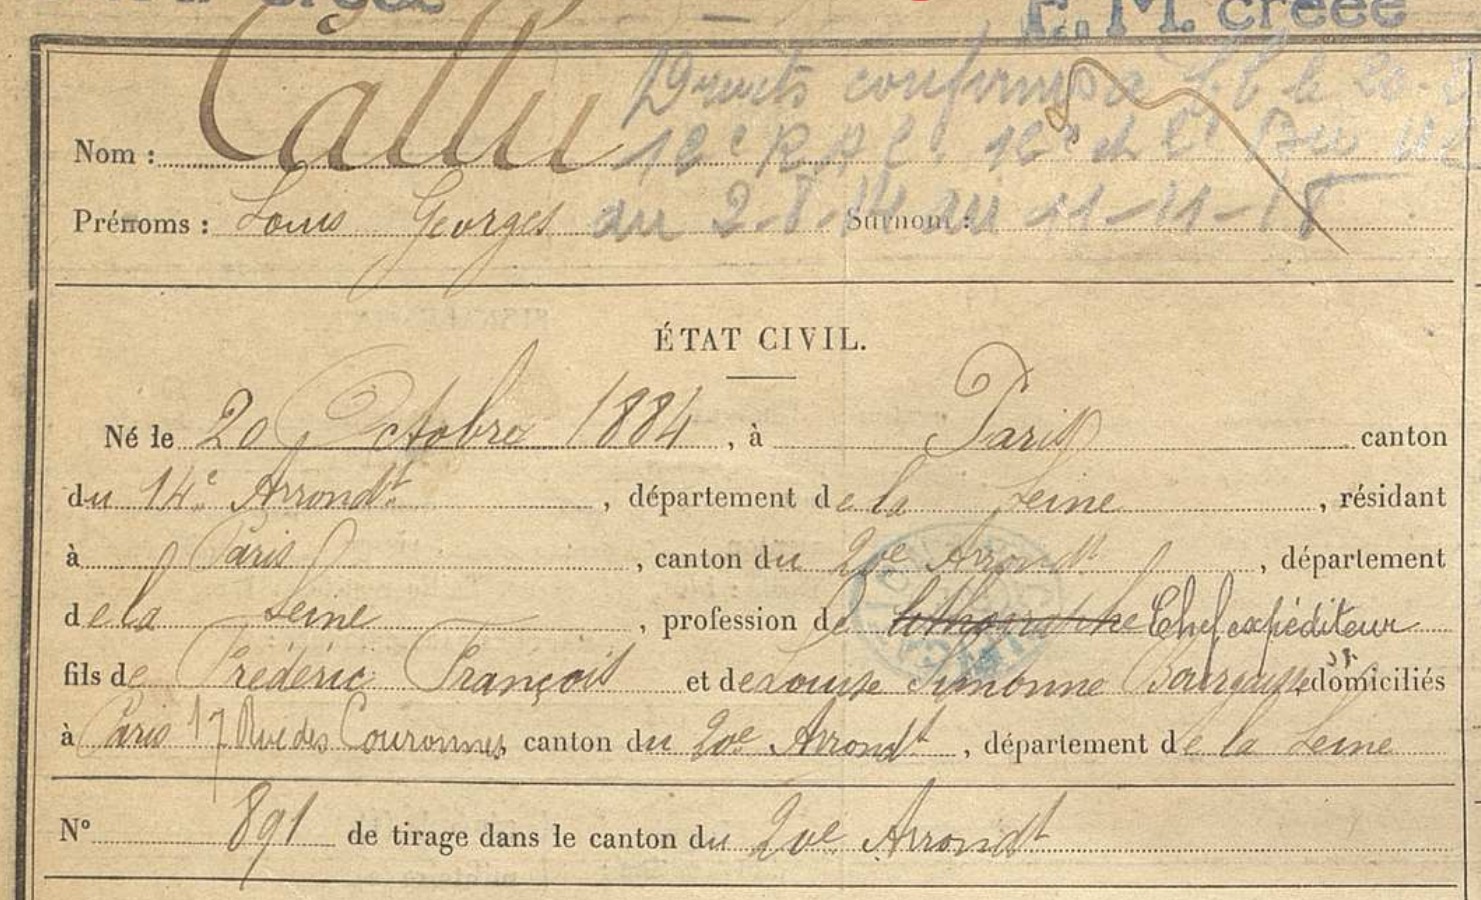 F. M. créée
Nom : Callu
Droits confirmés
au 2-8-14 au 11-11-18
Prénoms : Louis Georges Surnom :
ÉTAT CIVIL.
Né le 20 Octobre 1884, à Paris canton
du 14e Arrondt, département de la Seine, résidant
à Paris, canton du 20e Arrondt, département
de la Seine, profession de lithographe Chef expéditeur
fils de Frédéric François et de Louise Simonne domiciliés
à Paris 17 Rue des Couronnes, canton du 20e Arrondt, département de la Seine
N° 891 de tirage dans le canton du 20e Arrondt